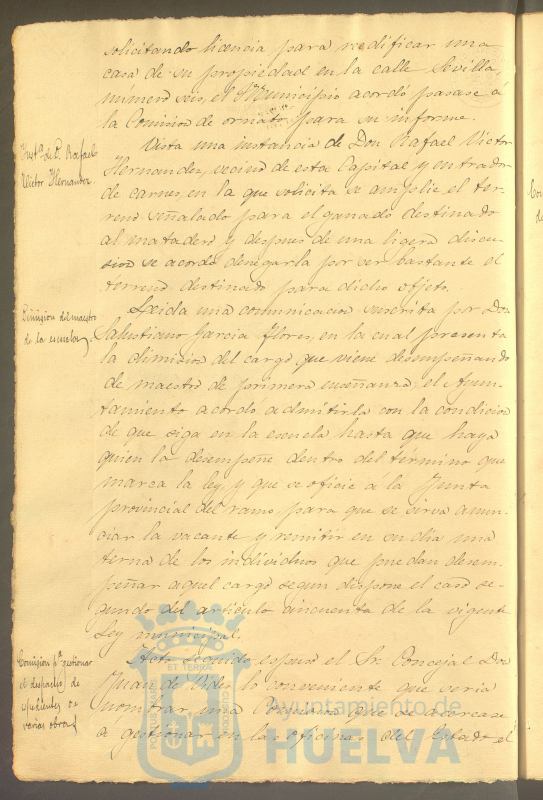 solicitando licencia para redificar una
casa de su propiedad en la calle Sevilla,
número seis, el Municipio acordó pasase á
la Comision de ornato para su informe.
Instª de D. Rafael
Victor Hernandez
Vista una instancia de Don Rafael Victor
Hernandez, vecino de esta Capital y entrador
de carnes, en la que solicita se amplie el ter-
reno señalado para el ganado destinado
al matadero y despues de una ligera discu-
sion se acordó denegarla por ser bastante el
terreno destinado para dicho objeto.
Dimision del maestro
de la escuela
Leida una comunicacion suscrita por Don
Salustiano Garcia Flores, en la cual presenta
la dimision del cargo que viene desempeñando
de maestro de primera enseñanza; el Ayun-
tamiento acordó admitirla con la condicion
de que siga en la escuela hasta que haya
quien la desempeñe dentro del término que
marca la ley, y que se oficie a la Junta
provincial del ramo para que se sirva anun-
ciar la vacante y remitir en su dia una
terna de los individuos que puedan desem-
peñar aquel cargo segun dispone el caso se-
gundo del articulo cincuenta de la vigente
Ley municipal.
Comision pª gestionar
el despacho de
espedientes de
varias obras
Acto seguido espuso el Sr. Concejal Don
Juan de Vides lo conveniente que seria
nombrar una Comision que se acercase
a gestionar en las oficinas del Estado el
ET TERRÆ
PORTUS MARIS
CUSTODIA
Ayuntamiento de
HUELVA